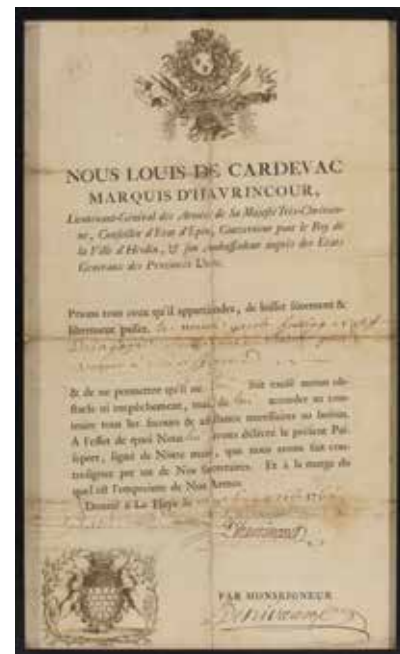 NOUS LOUIS DE CARDEVAC
MARQUIS D'HAVRINCOUR,
Lieutenant-Général des Armées de Sa Majesté Très-Chretien-
ne, Conseiller d'Etat d'Epée, Gouverneur pour le Roy de
la Ville d'Hesdin, & son Ambassadeur auprès des Etats
Generaux des Provinces Unies.
Prions tous ceux qu'il appartiendra, de laisser sûrement &
librement passer,
& de ne permettre qu'il ne soit causé aucun ob-
stacle ni empêchement, mais de accorder au con-
traire tous les secours & assistance necessaires au besoin.
A l'effet de quoi Nous avons délivré le présent Pas-
seport, signé de Nôtre main, que nous avons fait con-
tresigner par un de Nos Secretaires. Et à la marge du
quel est l'empreinte de Nos Armes.
Donné à La Haye le
PAR MONSEIGNEUR